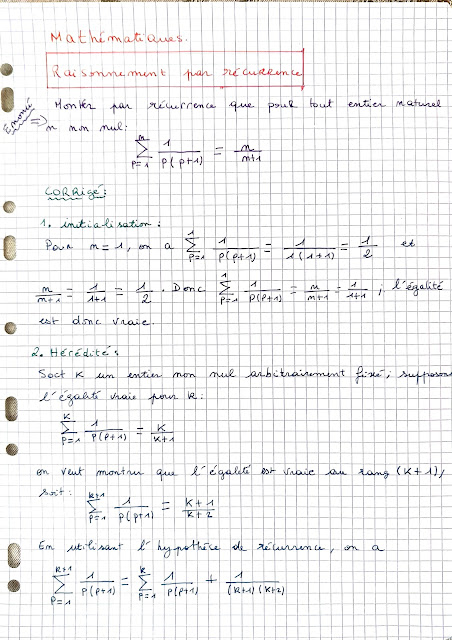 Mathématiques.
Raisonnement par récurrence
Enoncé => Montrer par récurrence que pour tout entier naturel
n non nul:
∑_{p=1}^{n} 1/(p(p+1)) = n/(n+1)
CORRigé:
1. initialisation :
Pour n=1, on a ∑_{p=1}^{1} 1/(p(p+1)) = 1/(1(1+1)) = 1/2 et
n/(n+1) = 1/(1+1) = 1/2. Donc ∑_{p=1}^{1} 1/(p(p+1)) = n/(n+1) = 1/(1+1) ; l'égalité
est donc vraie.
2. Hérédité :
Soit K un entier non nul arbitrairement fixé ; supposons
l'égalité vraie pour k :
∑_{p=1}^{K} 1/(p(p+1)) = K/(K+1)
on veut montrer que l'égalité est vraie au rang (K+1),
soit : ∑_{p=1}^{k+1} 1/(p(p+1)) = (K+1)/(k+2)
En utilisant l'hypothèse de récurrence, on a
∑_{p=1}^{k+1} 1/(p(p+1)) = ∑_{p=1}^{k} 1/(p(p+1)) + 1/((k+1)(k+2))